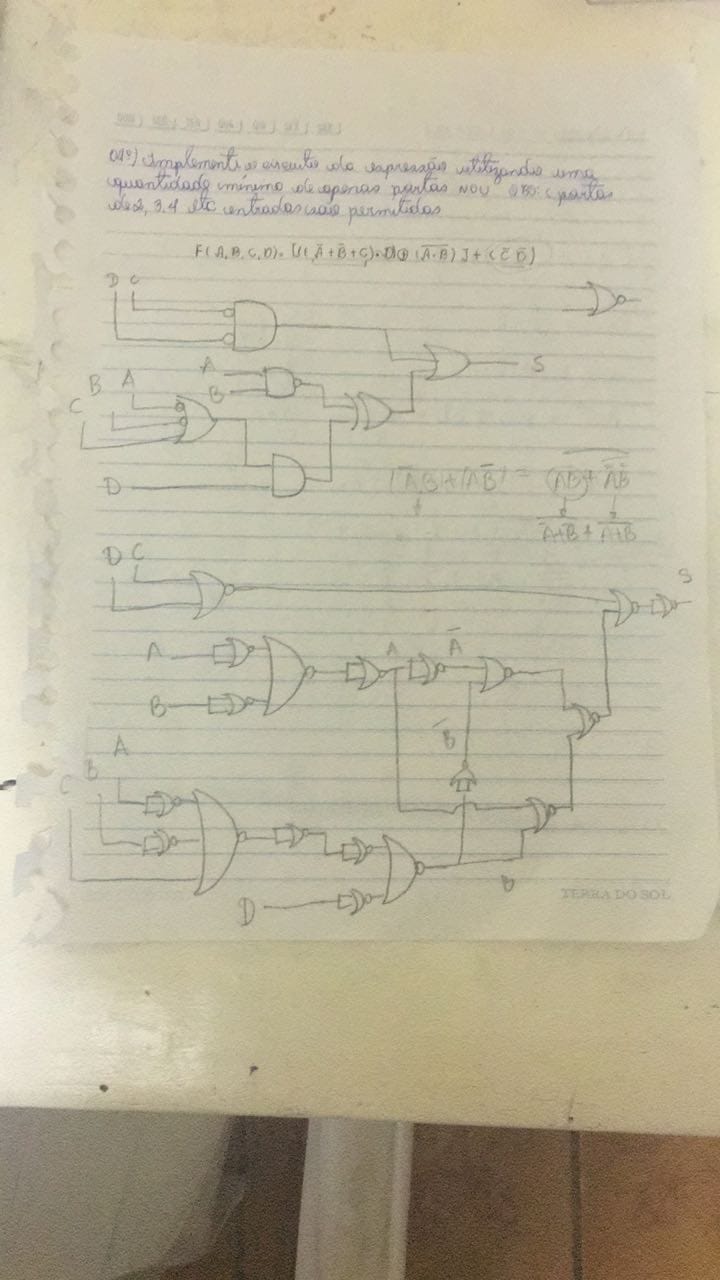 01º) Implemente o circuito da expressão utilizando uma
quantidade mínimo de apenas portas NOU OBS: portas
de 2, 3, 4 etc entradas são permitidas
F(A, B, C, D) = [((Ā + B̄ + C) · D) ⊕ (\overline{A·B})] + (C̄ D̄)
D C
S
A
B
B A
C
D
(ĀB) + (AB̄) =
D C
S
A
A Ā
B
B̄
A
B
C
B
D
TERRA DO SOL